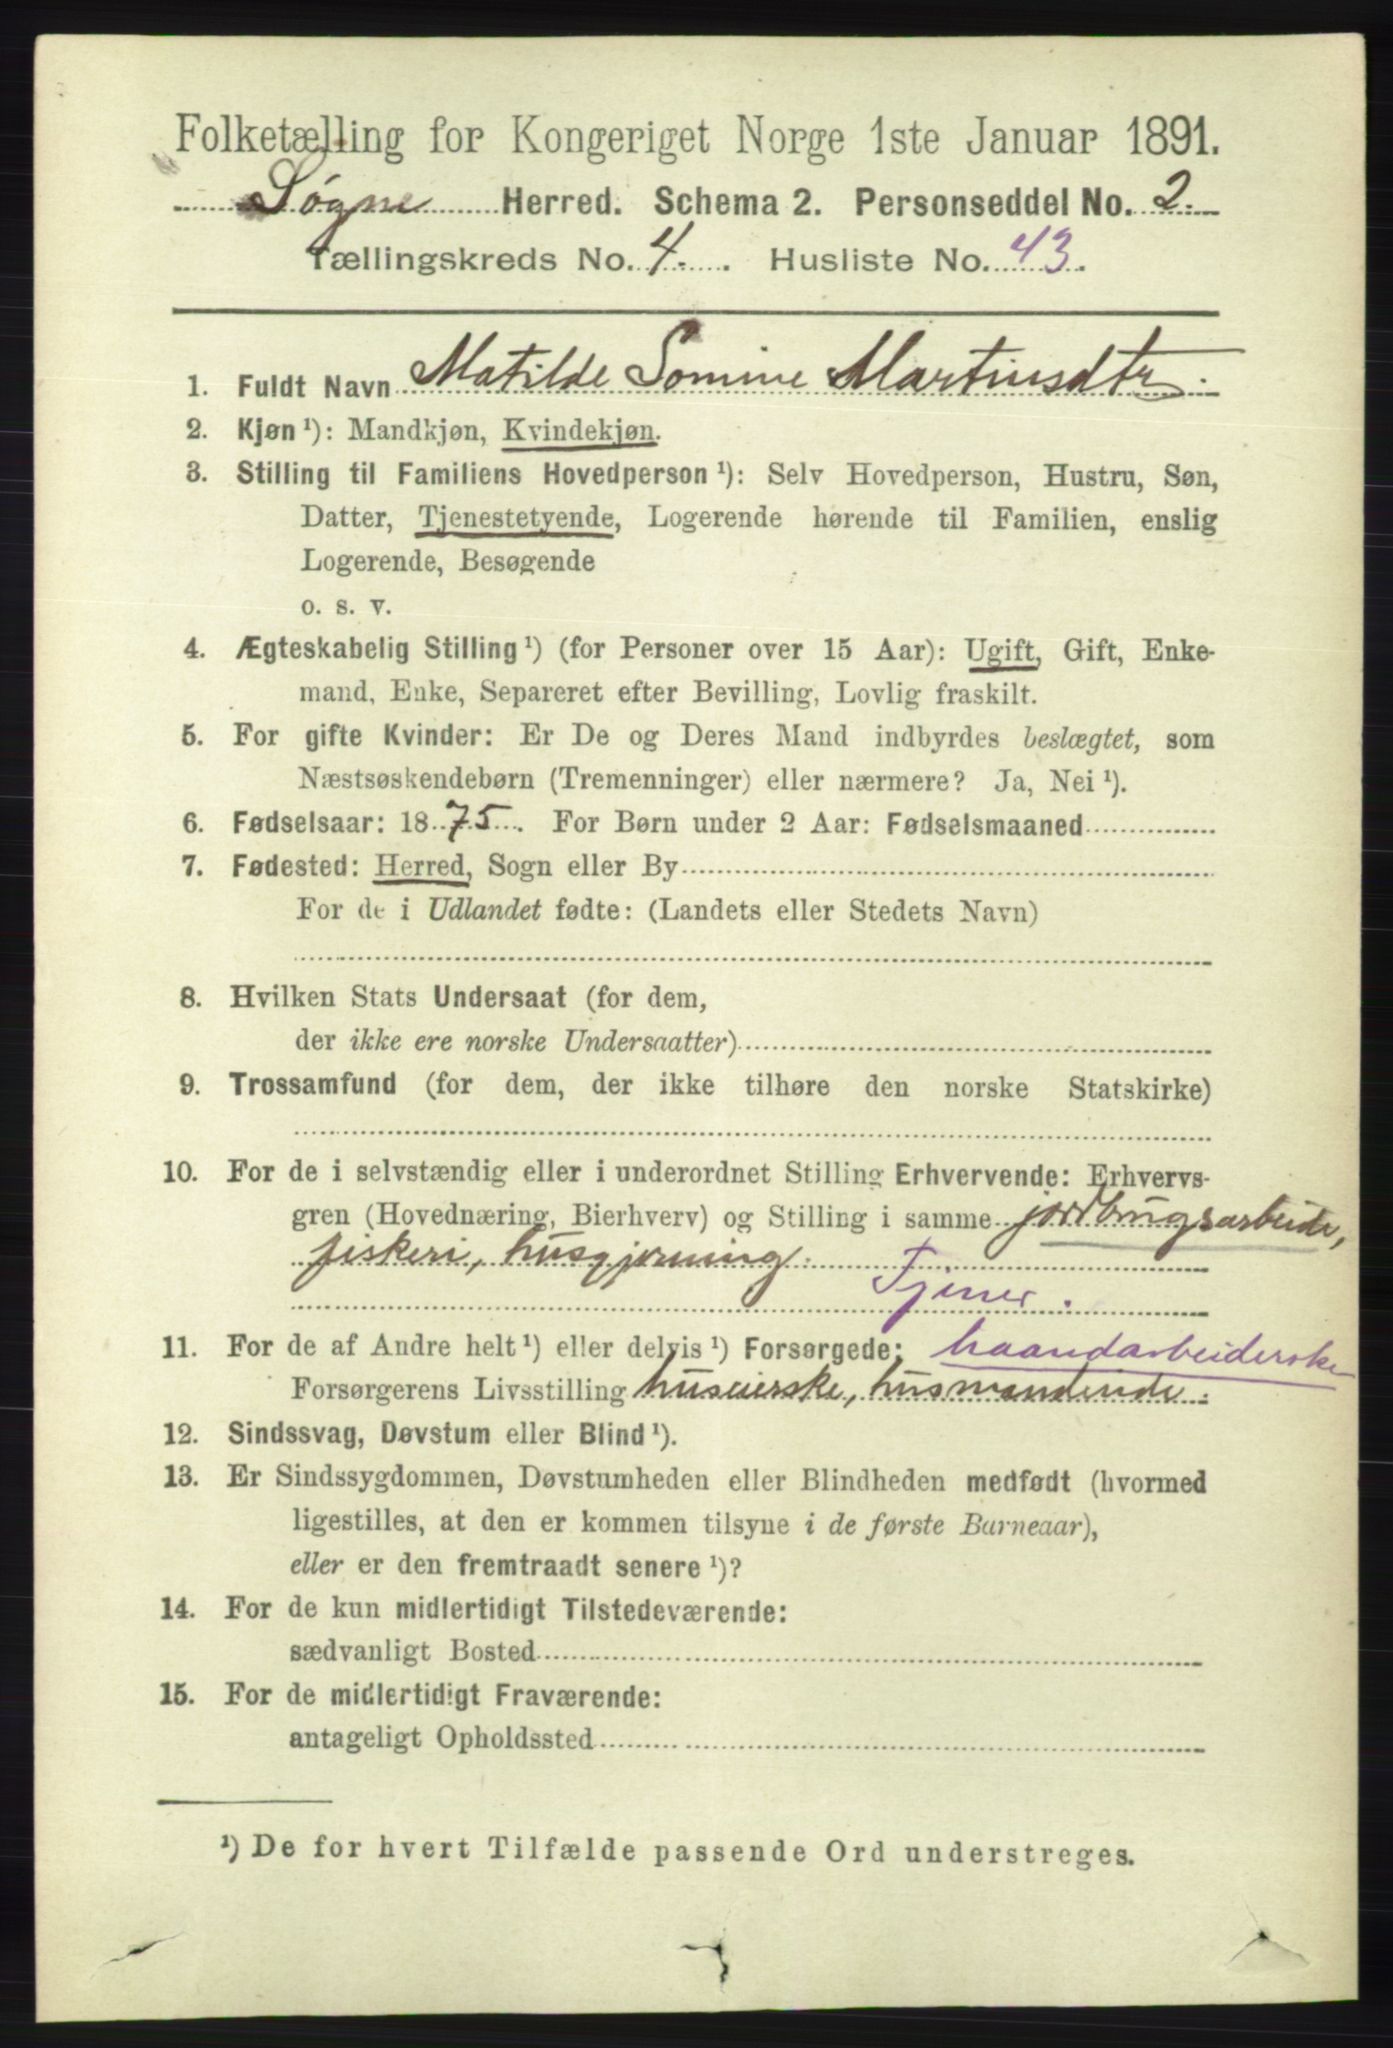 Folketælling for Kongeriget Norge 1ste Januar 1891.
Søgne Herred. Schema 2. Personseddel No. 2.
Tællingskreds No. 4. Husliste No. 43.
1. Fuldt Navn Matilde Somine Martinsdtr.
2. Kjøn ¹): Mandkjøn, Kvindekjøn.
3. Stilling til Familiens Hovedperson ¹): Selv Hovedperson, Hustru, Søn,
Datter, Tjenestetyende, Logerende hørende til Familien, enslig
Logerende, Besøgende
o. s. v.
4. Ægteskabelig Stilling ¹) (for Personer over 15 Aar): Ugift, Gift, Enke-
mand, Enke, Separeret efter Bevilling, Lovlig fraskilt.
5. For gifte Kvinder: Er De og Deres Mand indbyrdes beslægtet, som
Næstsøskendebørn (Tremenninger) eller nærmere? Ja, Nei ¹).
6. Fødselsaar: 1875. For Børn under 2 Aar: Fødselsmaaned
7. Fødested: Herred, Sogn eller By
For de i Udlandet fødte: (Landets eller Stedets Navn)
8. Hvilken Stats Undersaat (for dem,
der ikke ere norske Undersaatter)
9. Trossamfund (for dem, der ikke tilhøre den norske Statskirke)
10. For de i selvstændig eller i underordnet Stilling Erhvervende: Erhvervs-
gren (Hovednæring, Bierhverv) og Stilling i samme jordbrugsarbeide,
fiskeri, husgjerning.
Tjener.
11. For de af Andre helt ¹) eller delvis ¹) Forsørgede: haandarbeiderske
Forsørgerens Livsstilling huseierske, husmandenke.
12. Sindssvag, Døvstum eller Blind ¹).
13. Er Sindssygdommen, Døvstumheden eller Blindheden medfødt (hvormed
ligestilles, at den er kommen tilsyne i de første Barneaar),
eller er den fremtraadt senere ¹)?
14. For de kun midlertidigt Tilstedeværende:
sædvanligt Bosted
15. For de midlertidigt Fraværende:
antageligt Opholdssted
¹) De for hvert Tilfælde passende Ord understreges.